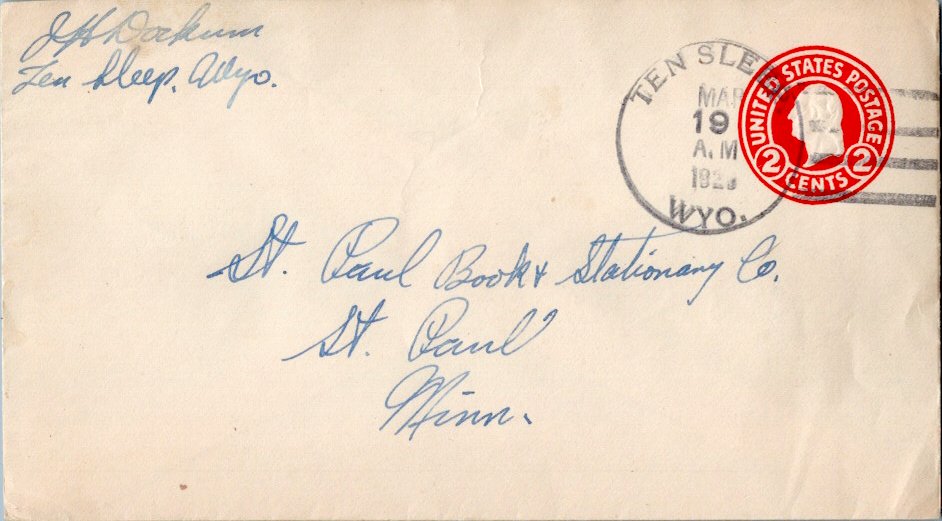 J H Dockum
Ten Sleep, Wyo.
TEN SLEEP
MAR
19
A.M
WYO.
UNITED STATES POSTAGE
2 CENTS 2
St. Paul Book & Stationary Co.
St. Paul
Minn.